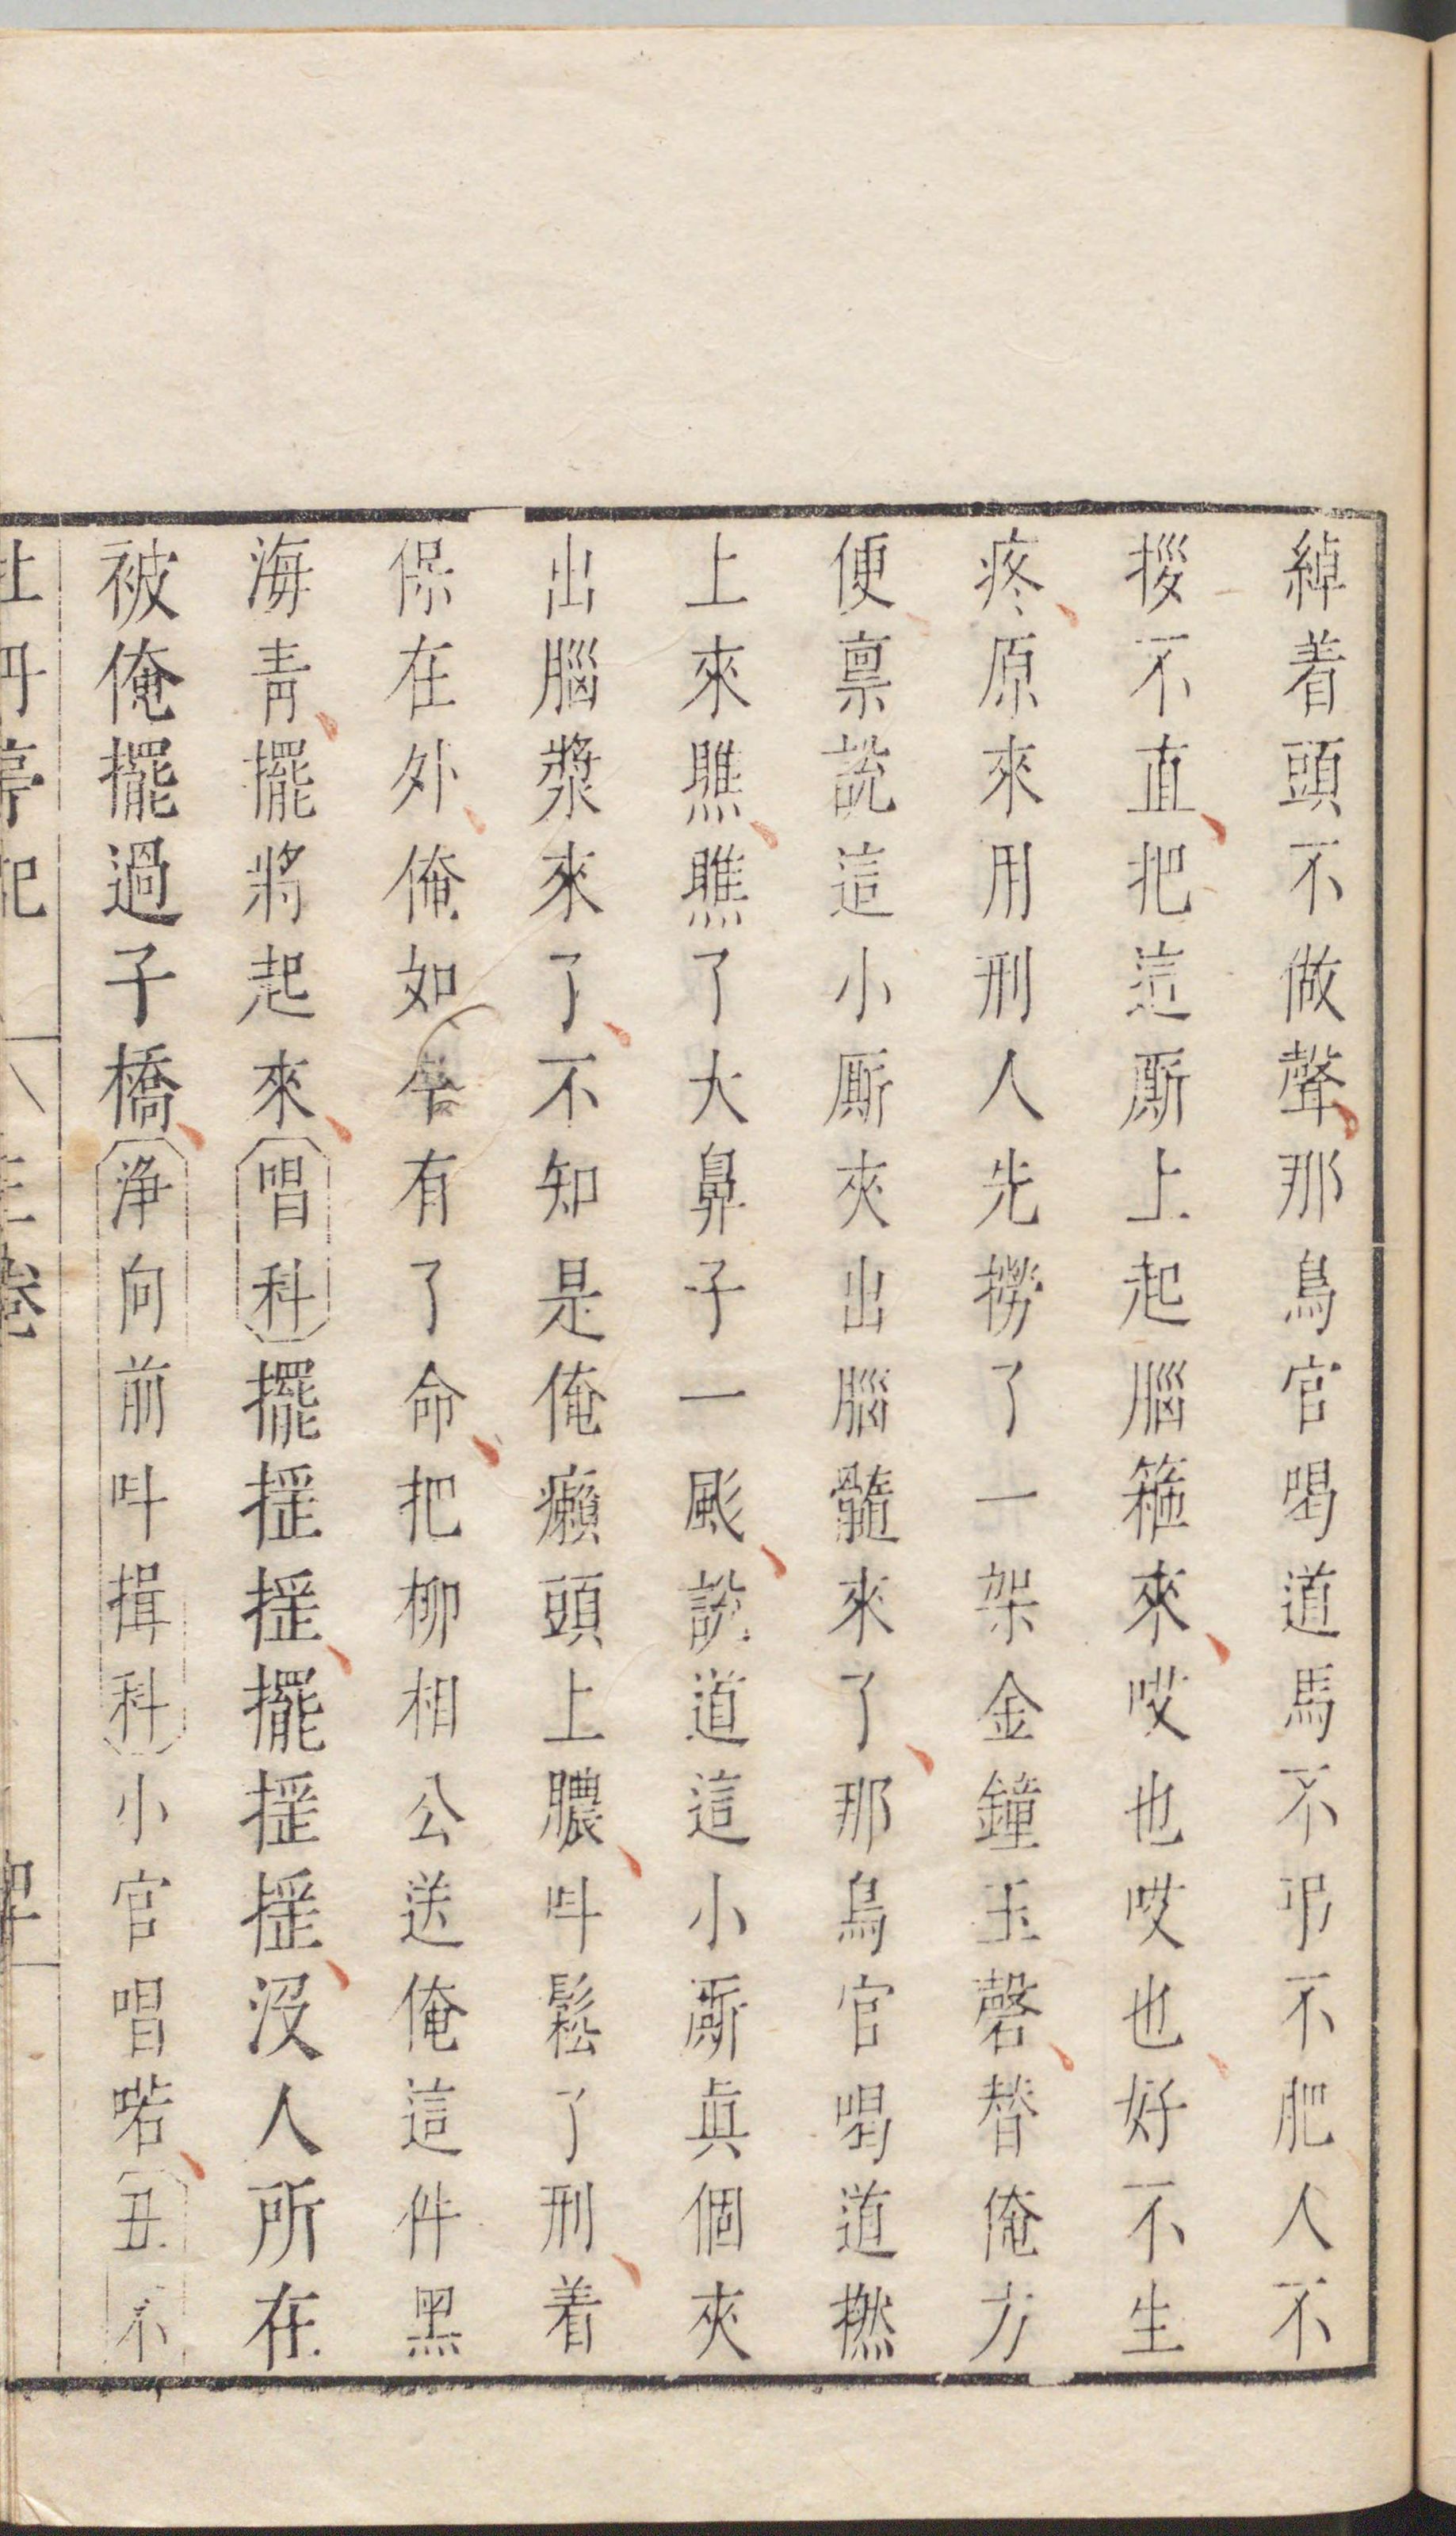 綽着頭不做聲那鳥官喝道馬不弔不肥人不
拶不直把這厮上起腦箍來哎也哎也好不生
疼原來用刑人先撈了一架金鐘玉磬替俺方
便禀說這小厮夾出腦髓來了那鳥官喝道撚
上來瞧瞧了大鼻子一颩說道這小厮眞個夾
出腦漿來了不知是俺癩頭上膿呌鬆了刑着
保在外俺如今有了命把柳相公送俺這件黑
海青擺將起來唱科擺摇摇擺摇摇沒人所在
被俺擺過子橋净向前呌揖科小官唱喏丑不